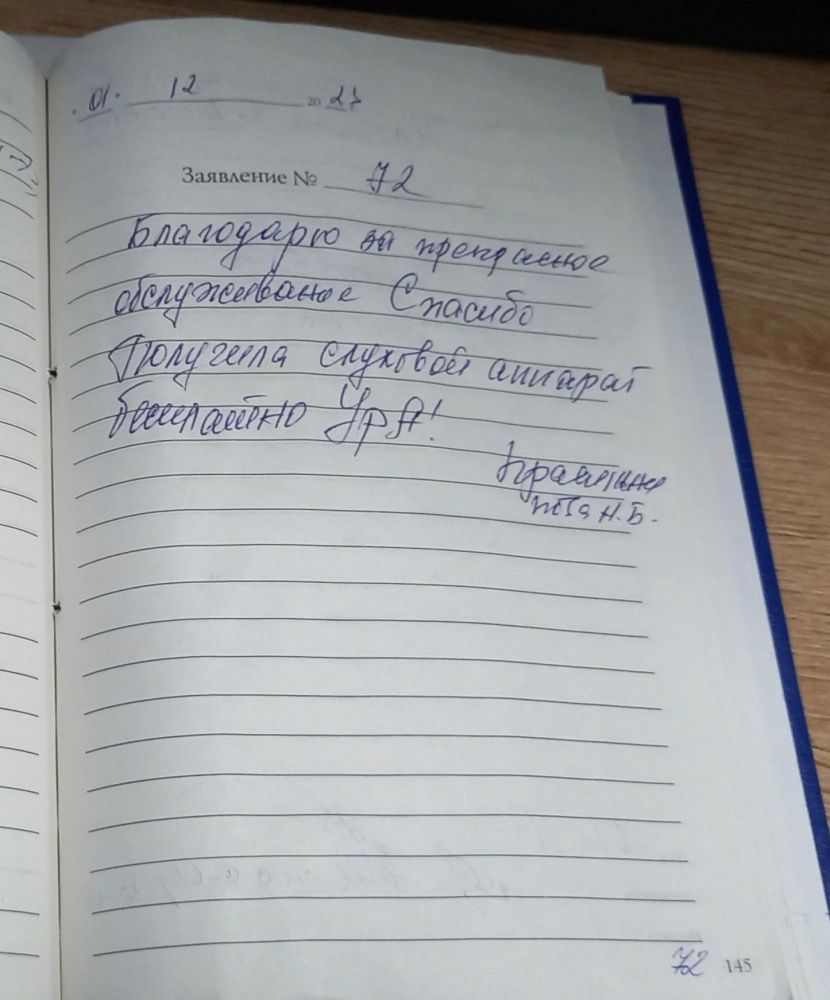 01. 12 20 23
Заявление № 72
Благодарю за прекрасное
обслуживание Спасибо
Получила слуховой аппарат
бесплатно УрА!
Н.Б.
72 145